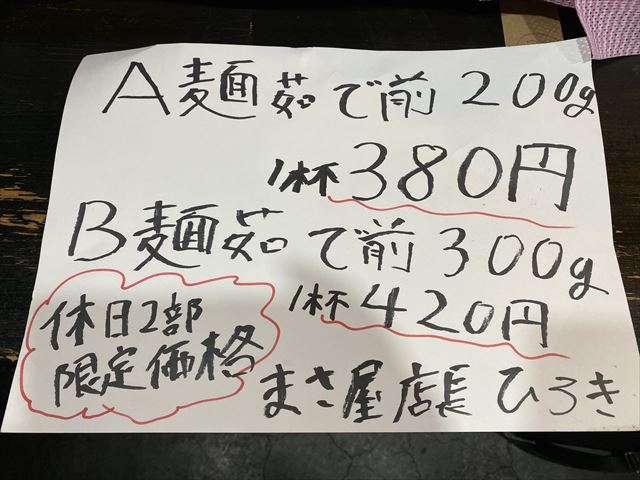 A麺茹で前 200g
1杯380円
B麺茹で前300g
1杯420円
休日2部
限定価格
まさ屋店長ひろき